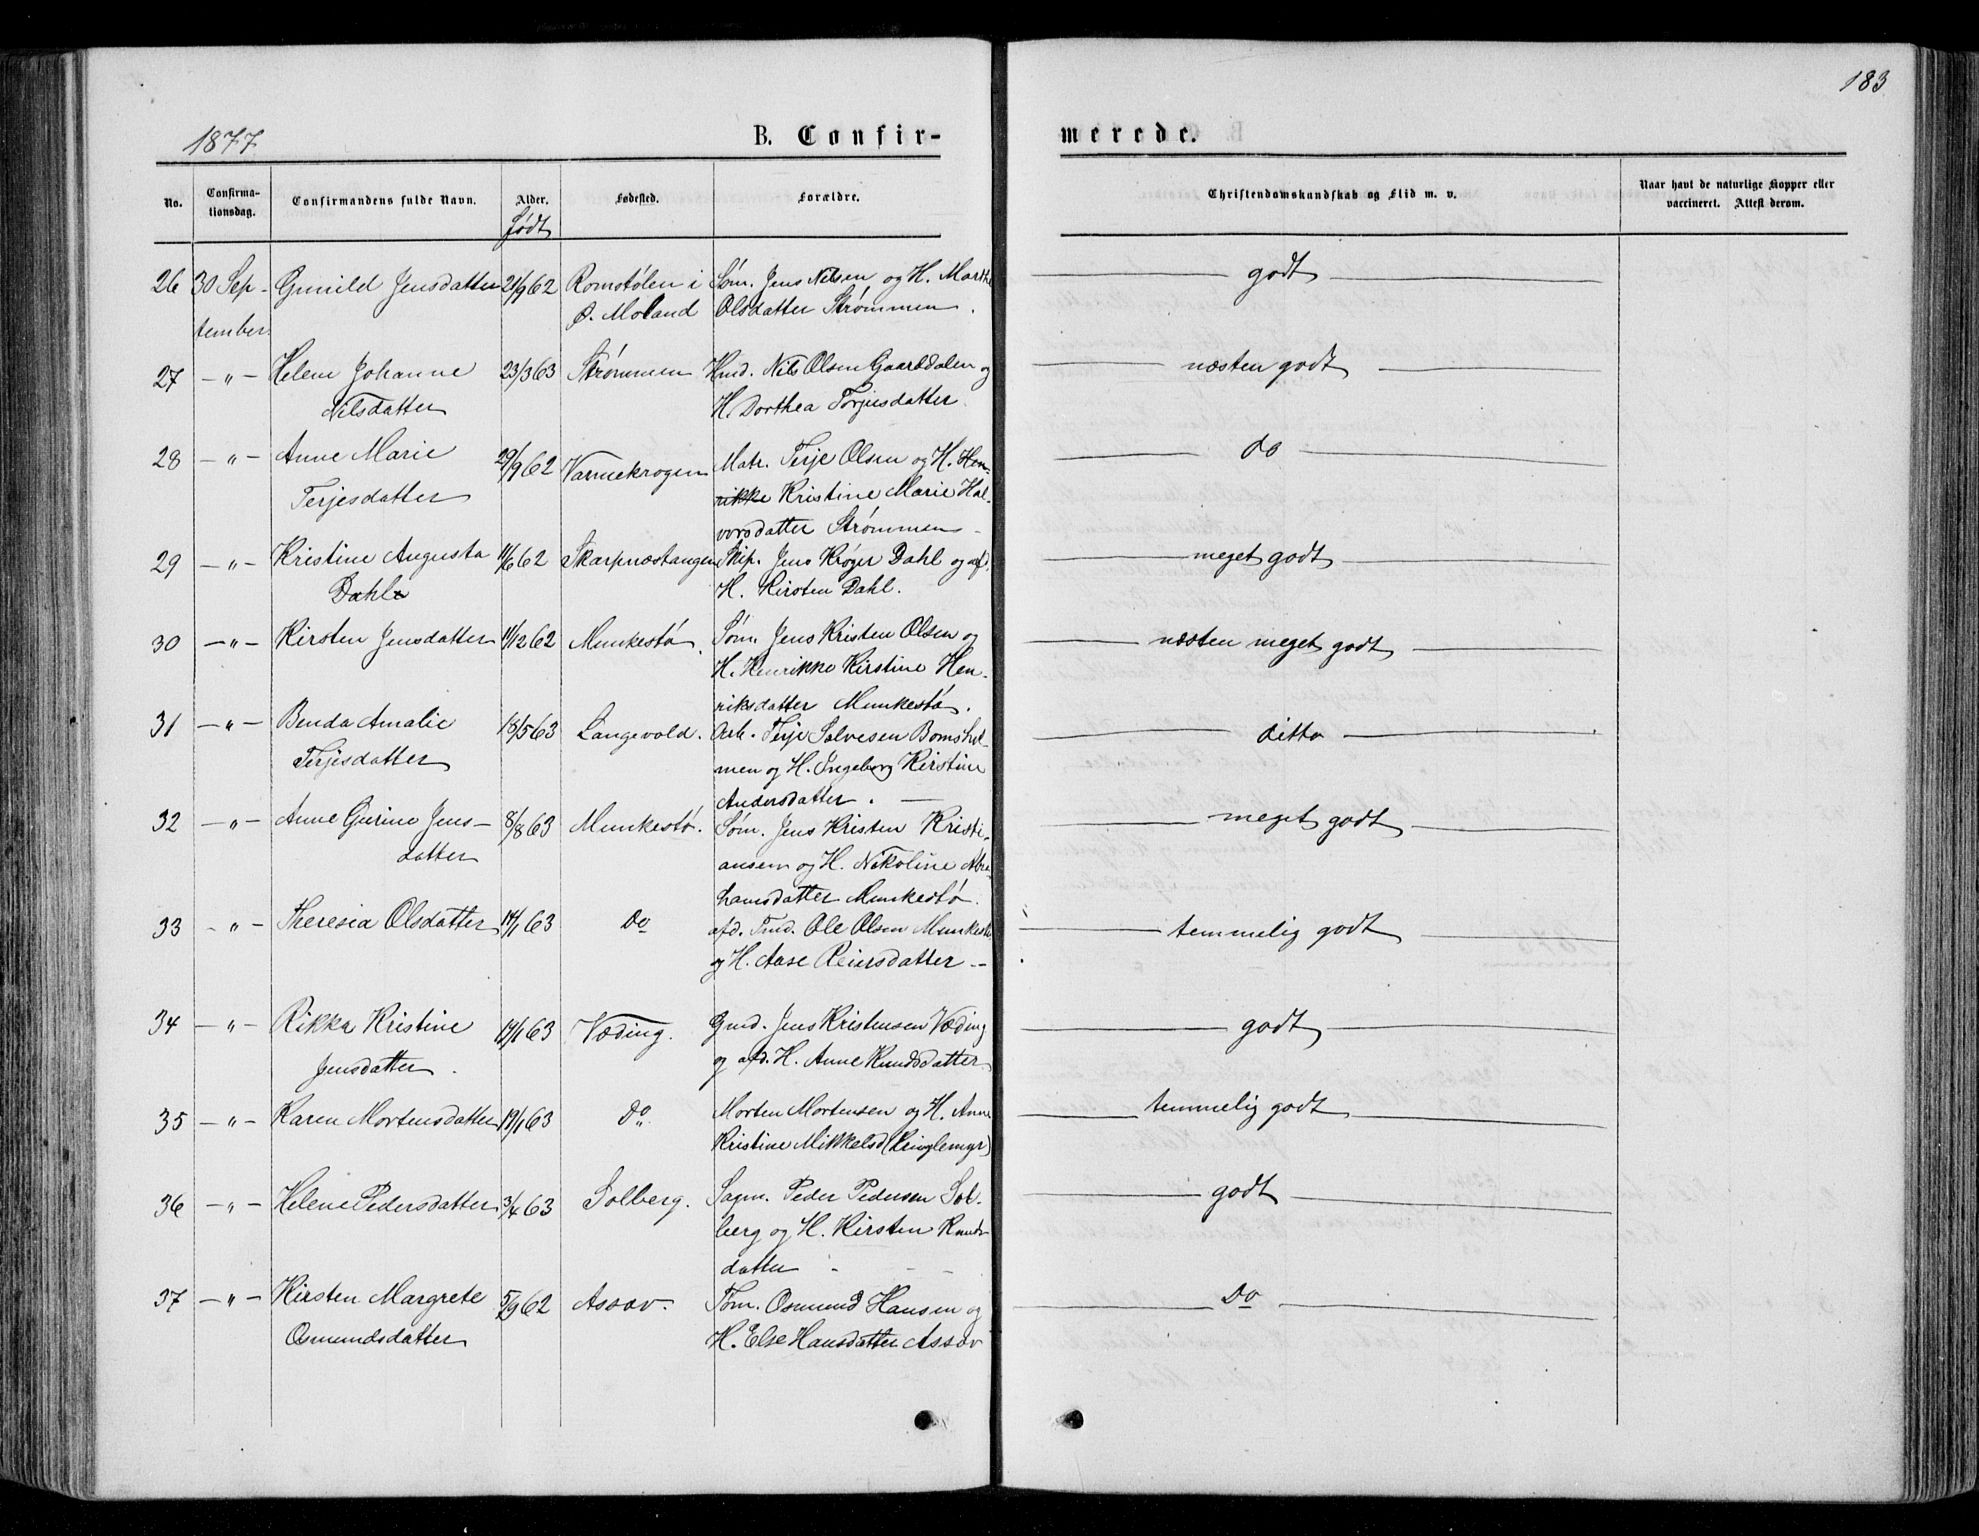 183
1877
B. Confir-
merede.
No.
Confirma-
tionsdag.
Confirmandens fulde Navn.
Alder.
født
Fødested.
Forældre.
Christendomskundskab og Flid m. v.
Naar havt de naturlige Kopper eller
vaccineret. Attest derom.
26 30 Sep- Gunild Jensdatter 21/9 62 Romstølen i Søm. Jens Nilsen og H. Marthe godt
tember Ø. Moland Olsdatter Strømmen.
27 -"- Helene Johanne 23/3 63 Strømmen Hmd. Nils Olsen Gaarddalen og næsten godt
Nilsdatter H. Dorthea Torjusdatter
28 -"- Anne Marie 29/9 62 Varmekrogen Matr. Terje Olsen og H. Hen- do
Terjesdatter rikke Kristine Marie Hal-
vorsdatter Strømmen
29 -"- Kristine Augusta 11/6 62 Skarpnæstangen Skip. Jens Krøger Dahl og af. meget godt
Dahl H. Kirsten Dahl.
30 -"- Kirsten Jensdatter 11/12 62 Munkestø. Søm. Jens Kristen Olsen og næsten meget godt
H. Henrikke Kirstine Hen-
riksdatter Munkestø.
31 -"- Benda Amalie 18/5 63 Langevold. Arb. Terje Salvesen Bomshol- ditto
Terjesdatter men og H. Ingeborg Kirstine
Andersdatter.
32 -"- Anne Gurine Jens- 8/8 63 Munkestø. Søm. Jens Kristen Kristi- meget godt
datter ansen og H. Nikoline Abra-
hamsdatter Munkestø.
33 -"- Theresia Olsdatter 14/1 63 Do afd. Tmd. Ole Olsen Munkestø temmelig godt
og H. Aase Reiersdatter -
34 -"- Rikka Kristine 14/1 63 Væding. Gmd. Jens Kristensen Væding godt
Jensdatter. og afd. H. Anne Knudsdatter
35 -"- Karen Mortensdatter 19/1 63 Do Morten Mortensen og H. Anne temmelig godt
Kristine Mikkelsd (Kringlemyr)
36 -"- Helene Pedersdatter 3/4 63 Solberg. Sagm. Peder Pedersen Sol- godt
berg og H. Kirsten Knuds-
datter
37 -"- Kirsten Margrete 5/9 62 Assav. Tøm. Osmund Hansen og Do
Osmundsdatter H. Else Hansdatter Assav